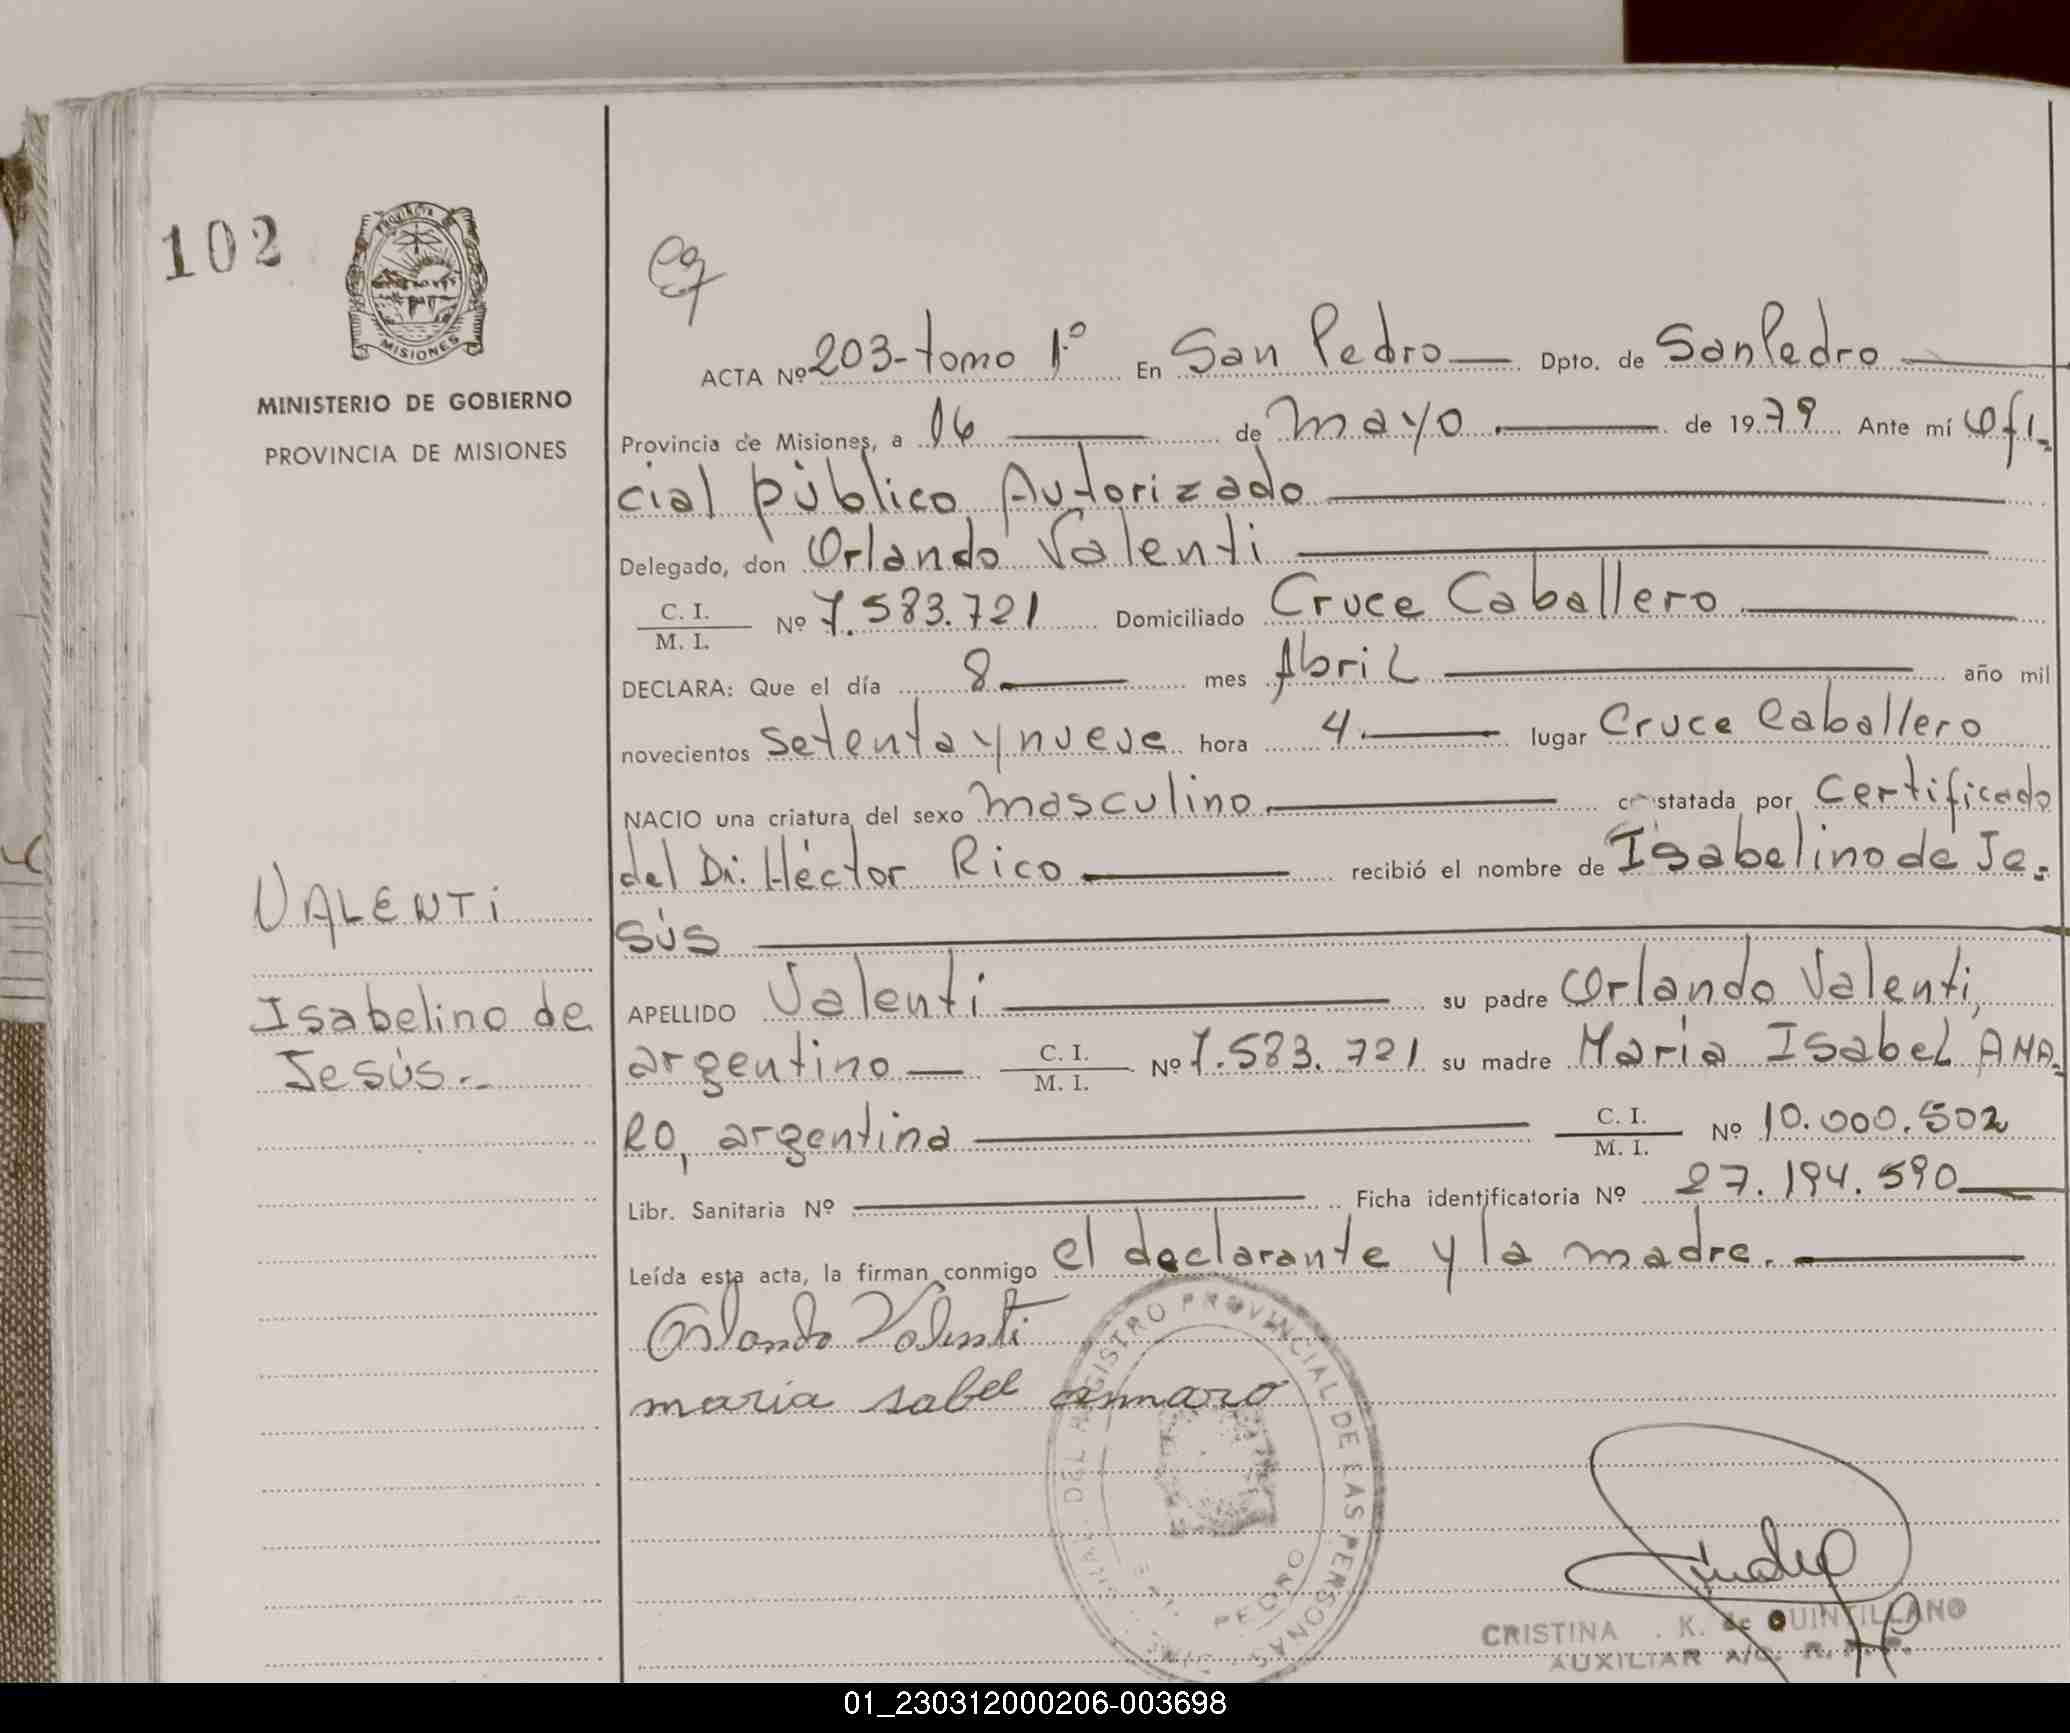 102
PROVINCIA
MISIONES
MINISTERIO DE GOBIERNO
PROVINCIA DE MISIONES
VALENTi
Isabelino de
Jesús.-
ACTA Nº 203-tomo 1º En San Pedro Dpto. de San Pedro
Provincia de Misiones, a 16 de mayo de 1979 Ante mí Ofi-
cial público Autorizado
Delegado, don Orlando Valenti
C. I.
M. I. Nº 7.583.721 Domiciliado Cruce Caballero
DECLARA: Que el día 8 mes Abril año mil
novecientos setenta y nueve hora 4 lugar Cruce Caballero
NACIO una criatura del sexo masculino constatada por Certificado
del Dr. Héctor Rico recibió el nombre de Isabelino de Je-
sús
APELLIDO Valenti su padre Orlando Valenti,
argentino C. I. M. I. Nº 7.583.721 su madre María Isabel AMA-
RO, argentina C. I. M. I. Nº 10.000.502
Libr. Sanitaria Nº Ficha identificatoria Nº 27.194.590
Leída esta acta, la firman conmigo el declarante y la madre.
Orlando Valenti
maria sabel amaro
DEL REGISTRO PROVINCIAL DE LAS PERSONAS
PEDRO
CRISTINA K. de QUINTILLANO
AUXILIAR A/C. R.P.P.
01_230312000206-003698